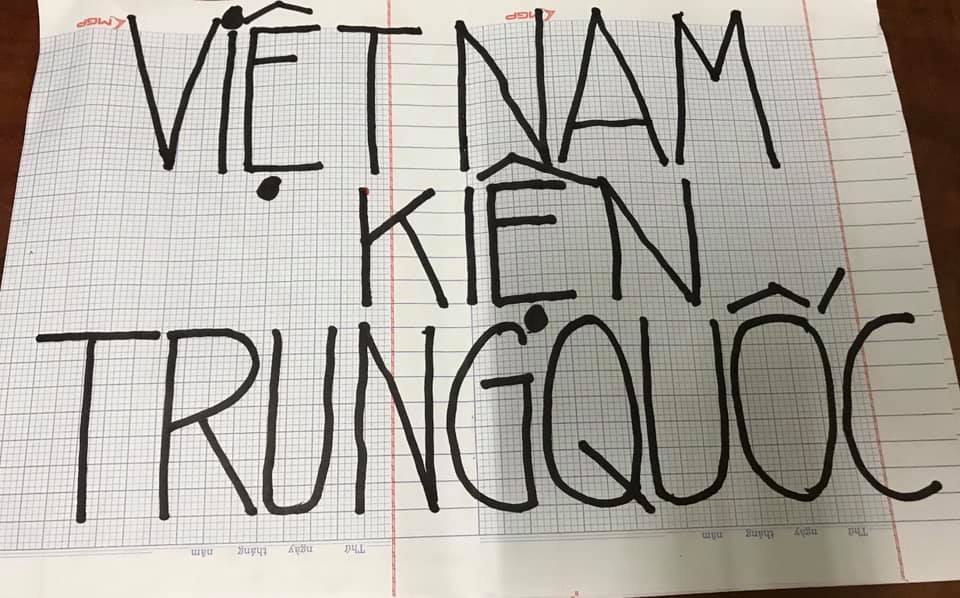 MGP MGP
VIỆT NAM
KIỆN
TRUNG QUỐC
Thứ ngày tháng năm Thứ ngày tháng năm